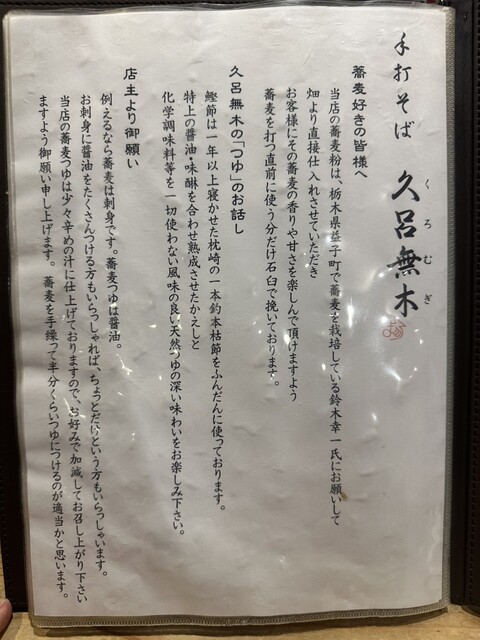 手打そば 久呂無木
くろむぎ
蕎麦好きの皆様へ
当店の蕎麦粉は、栃木県益子町で蕎麦を栽培している鈴木幸一氏にお願いして
畑より直接仕入れさせていただき
お客様にその蕎麦の香りや甘さを楽しんで頂けますよう
蕎麦を打つ直前に使う分だけ石臼で挽いております。
久呂無木の「つゆ」のお話し
鰹節は一年以上寝かせた枕崎の一本釣本枯節をふんだんに使っております。
特上の醤油・味醂を合わせ熟成させたかえしと
化学調味料等を一切使わない風味の良い天然つゆの深い味わいをお楽しみ下さい。
店主より御願い
例えるなら蕎麦は刺身です。蕎麦つゆは醤油。
お刺身に醤油をたくさんつける方もいらっしゃれば、ちょっとだけという方もいらっしゃいます。
当店の蕎麦つゆは少々辛めの汁に仕上げておりますので、お好みで加減してお召し上がり下さい
ますよう御願い申し上げます。 蕎麦を手繰って半分くらいつゆにつけるのが適当かと思います。